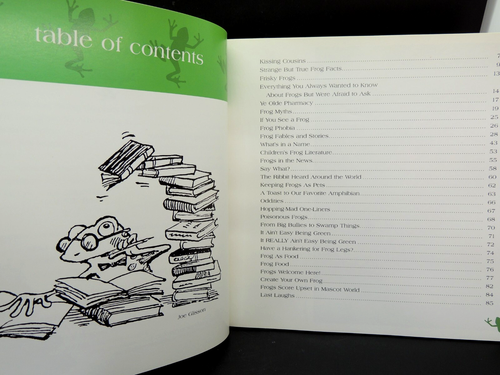 table of contents
Kissing Cousins
Strange But True Frog Facts 9
Frisky Frogs 13
Everything You Always Wanted to Know
About Frogs But Were Afraid to Ask 14
Ye Olde Pharmacy 17
Frog Myths 19
If You See a Frog 25
Frog Phobia 26
Frog Fables and Stories 28
What's in a Name 43
Children's Frog Literature 53
Frogs in the News 55
Say What? 58
The Ribbit Heard Around the World 60
Keeping Frogs As Pets 62
A Toast to Our Favorite Amphibian 63
Oddities 66
Hopping Mad One-Liners 67
Poisonous Frogs 68
From Big Bullies to Swamp Things 70
It Ain't Easy Being Green 71
It REALLY Ain't Easy Being Green 72
Have a Hankering for Frog Legs? 74
Frog As Food 75
Frog Food 76
Frogs Welcome Here! 77
Create Your Own Frog 82
Frogs Score Upset in Mascot World 84
Last Laughs 85
Joe